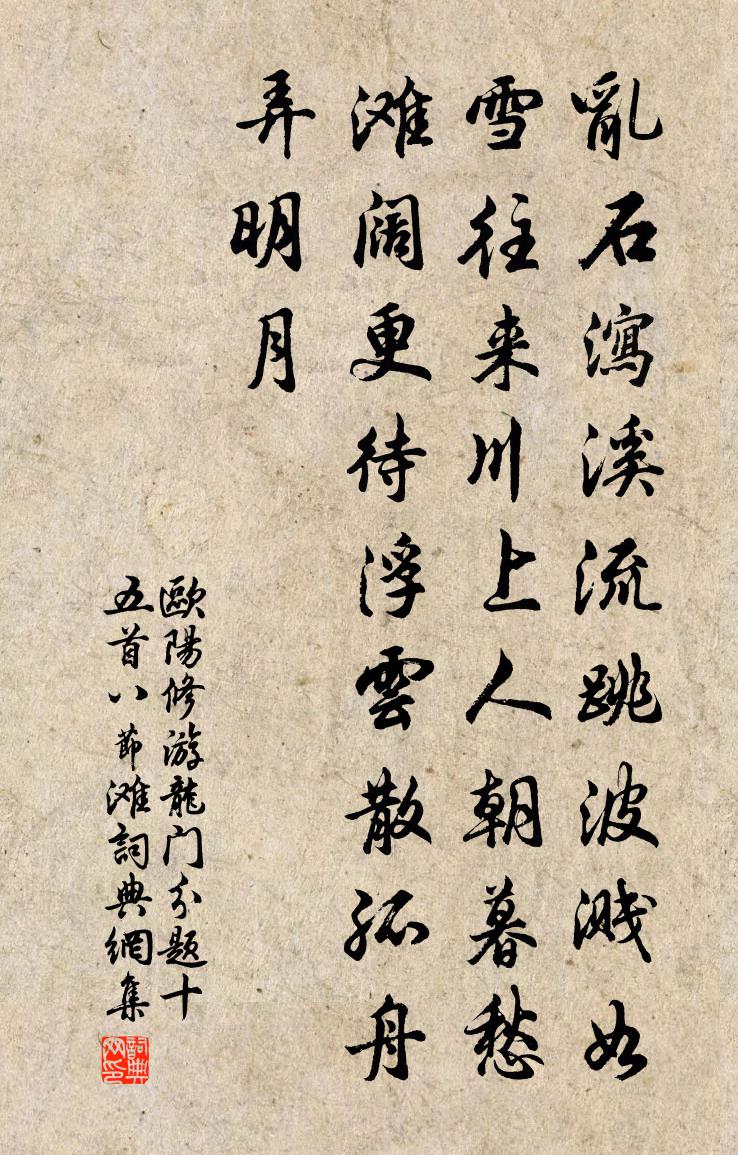 亂石瀉溪流跳波濺如
雪往来川上人朝暮愁
滩阔更待浮雲散孤舟
弄明月
歐陽修游龍门分题十
五首八節滩詞典網集
詞典
网印